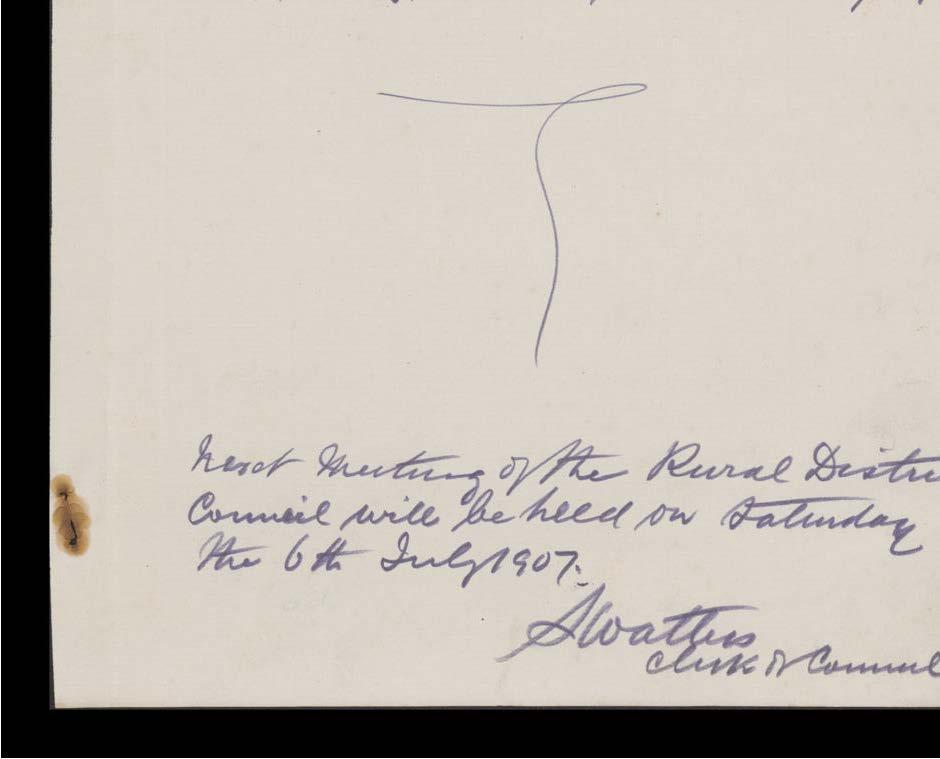 Next Meeting of the Rural Distri
Council will be held on Saturday
the 6th July 1907.
S Watters
Clerk of Council